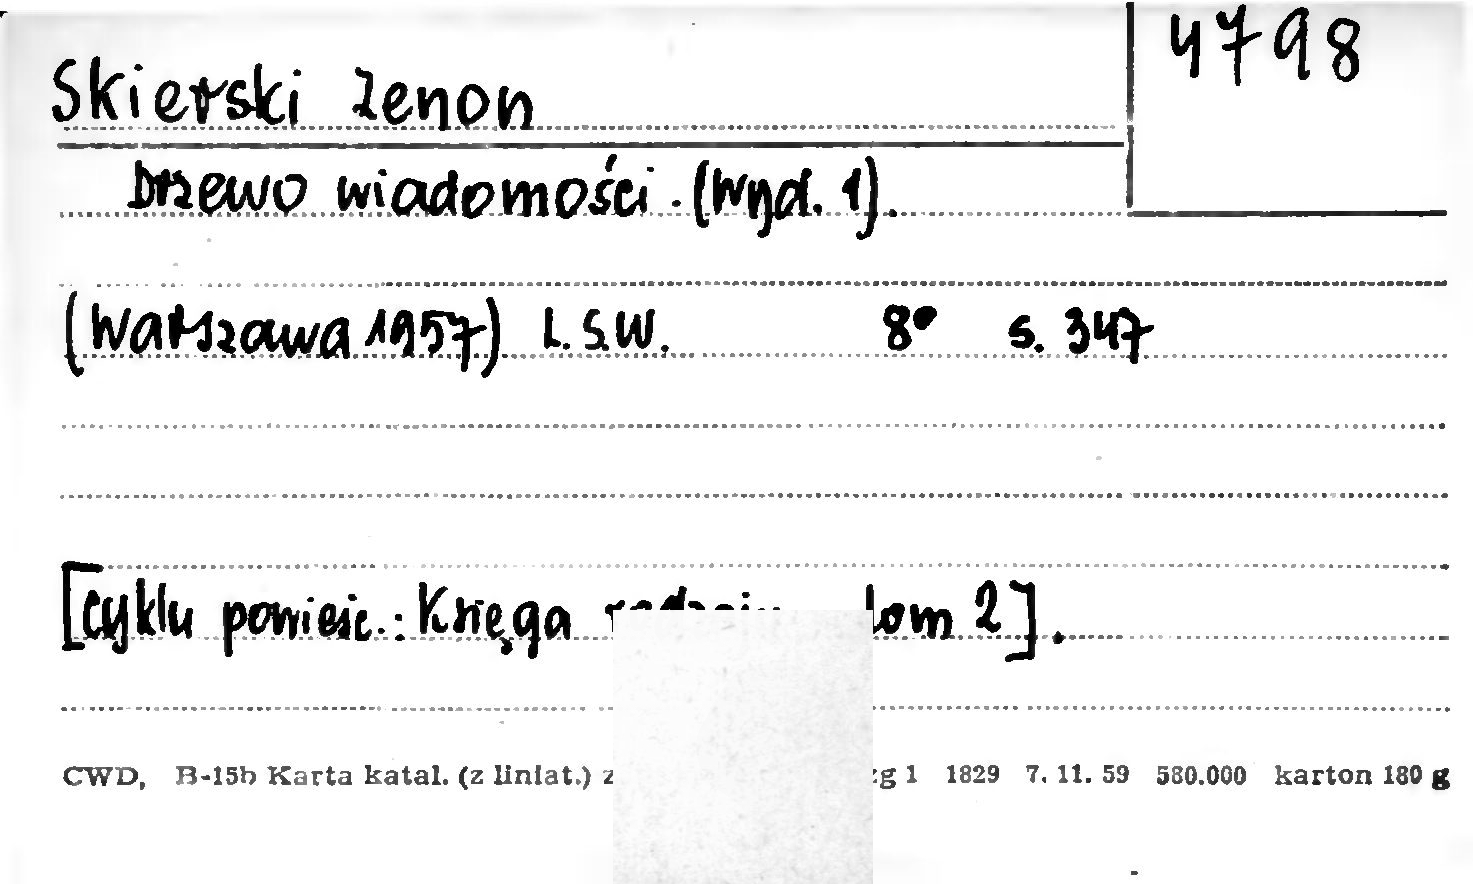 4798
Skierski Zenon
Drzewo wiadomości. (Wyd. 1).
(Warszawa 1957) L.S.W. 8° s. 347
[cyklu powieśc.: Księga tom 2].
CWD, B-15b Karta katal. (z liniat.) 1 1829 7. 11. 59 580.000 karton 180 g